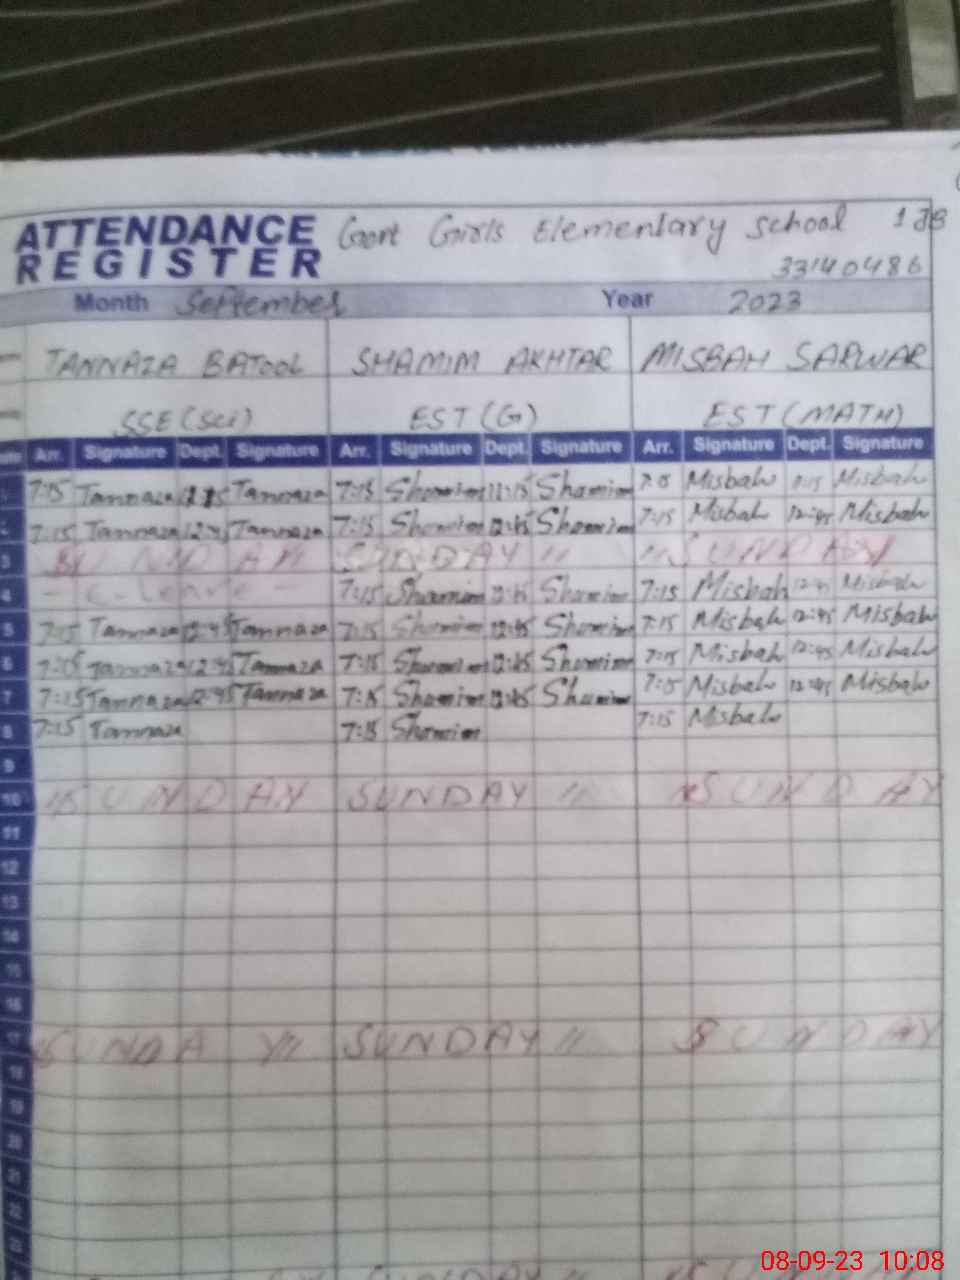 ATTENDANCE Govt Girls Elementary School 1 JB
REGISTER 33140486
Month September Year 2023
TANNAZA BATOOL SHAMIM AKHTAR MISBAH SARWAR
SSE (Sci) EST (G) EST (MATH)
Arr. Signature Dept. Signature Arr. Signature Dept. Signature Arr. Signature Dept. Signature
7:15 Tannaza Tannaza 7:15 Shamim 11:15 Shamim Misbah Misbah
7:15 Tannaza 12:45 Tannaza 7:15 Shamim 12:45 Shamim 7:15 Misbah 12:45 Misbah
3 SUNDAY SUNDAY " " SUNDAY
4 - C-Leave - 7:15 Shamim Shamim 7:15 Misbah Misbah
5 7:15 Tannaza 12:45 Tannaza 7:15 Shamim 12:45 Shamim 7:15 Misbah 12:45 Misbah
6 7:15 Tannaza 12:45 Tannaza 7:15 Shamim 12:45 Shamim 7:15 Misbah 12:45 Misbah
7 7:15 Tannaza 12:45 Tannaza 7:15 Shamim 12:45 Shamim Misbah 12:45 Misbah
8 7:15 Tannaza 7:15 Shamim 7:15 Misbah
9
10 " SUNDAY SUNDAY " SUNDAY
11
12
13
14
15
16
17 SUNDAY " SUNDAY " SUNDAY
18
19
20
21
22
23
08-09-23 10:08